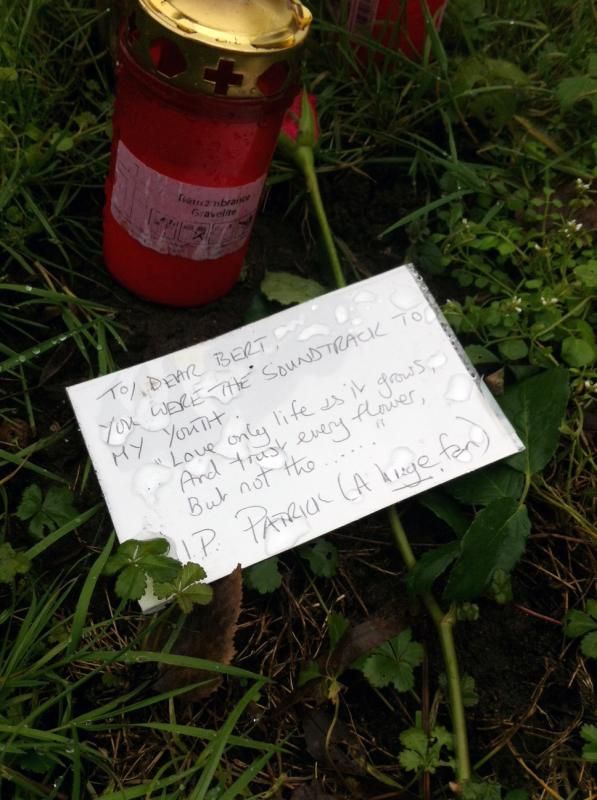 Remembrance
Gravelite
TO/ DEAR BERT,
YOU WERE THE SOUNDTRACK TO
MY YOUTH
"Love only life as it grows,
And trust every flower,
But not the ......."
I.P. PATRICK (A huge fan)